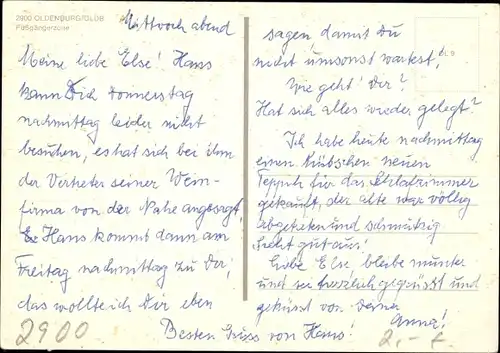 2900 OLDENBURG/OLDB
Fußgängerzone
Mittwoch abend
Meine liebe Else! Hans
kann Dich Donnerstag
nachmittag leider nicht
besuchen, es hat sich bei ihm
der Vertreter seiner Wein-
firma von der Nahe angesagt,
Hans kommt dann am
Freitag nachmittag zu Dir,
das wollte ich Dir eben
sagen damit Du
nicht umsonst wartest,
Wie geht's Dir?
Hat sich alles wieder gelegt?
Ich habe heute nachmittag
einen hübschen neuen
Teppich für das Schlafzimmer
gekauft, der alte war völlig
abgetreten und schmutzig
Sieht gut aus!
Liebe Else bleibe munter
und sei herzlich gegrüsst und
geküsst von Deiner
Anna!
Besten Gruss von Hans!
2900
2,-